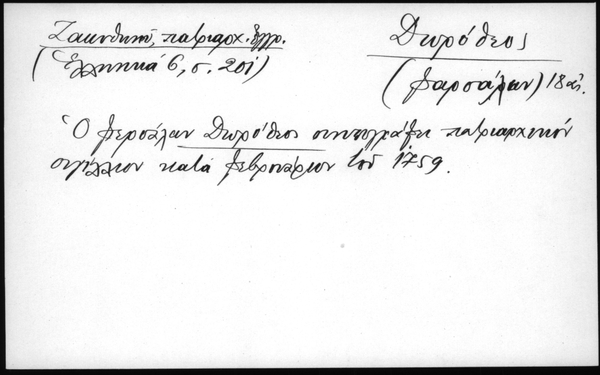 Ζακυθηνοῦ, πατριαρχ. ἔγγρ.
(Ἑλληνικά 6, σ. 201)
Δωρόθεος
(Φαρσάλων) 18 αἰ.
Ὁ Φερσάλων Δωρόθεος συνυπογράφει πατριαρχικόν
σιγίλλιον κατά Φεβρουάριον τοῦ 1759.